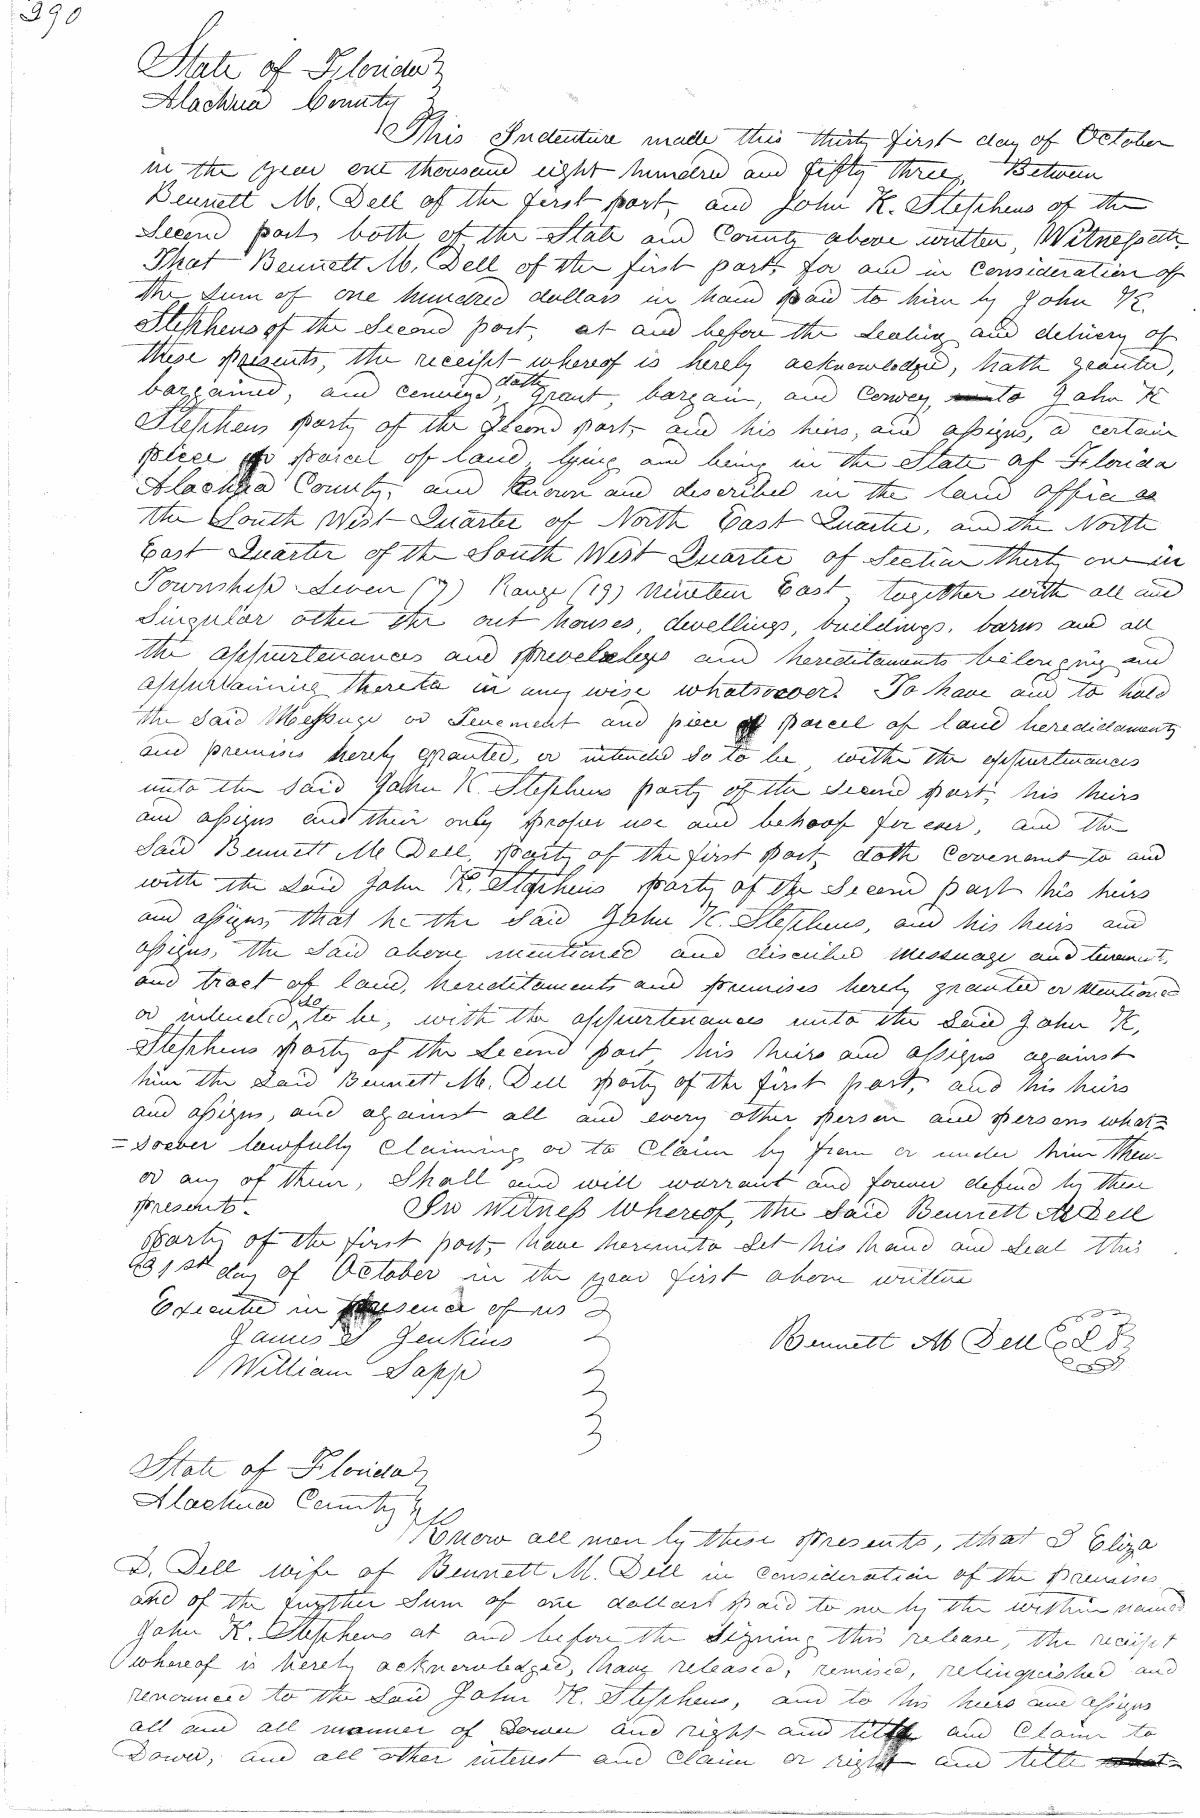 390
State of Florida
Alachua County
This Indenture made this thirty first day of October
in the year one thousand eight hundred and fifty three, Between
Bennett M. Dell of the first part, and John K. Stephens of the
Second part, both of the State and County above written, Witnesseth
That Bennett M. Dell of the first part, for and in consideration of
the sum of one hundred dollars in hand paid to him by John K.
Stephens of the Second part, at and before the Sealing and delivery of
these presents, the receipt whereof is hereby acknowledged, hath granted,
bargained, and conveyed, doth grant, bargain, and Convey, unto John K
Stephens party of the Second part, and his heirs, and assigns, a certain
piece or parcel of land, lying and being in the State of Florida
Alachua County, and Known and described in the land office as
the South West Quarter of North East Quarter, and the North
East Quarter of the South West Quarter of Section thirty one in
Township Seven (7) Range (19) Nineteen East, together with all and
Singular other the out houses, dwellings, buildings, barns and all
the appurtenances and and hereditaments belonging and
appurtaining thereto in any wise whatsoever. To have and to hold
the said Messuage or Tenement and piece or parcel of land heredidaments
and premises hereby granted, or intended so to be, withe the appurtenances
unto the said John K. Stephens party of the Second part, his heirs
and assigns and their only proper use and behoof for ever, and the
Said Bennett M Dell, party of the first part, doth Covenant to and
with the Said John K. Stephens party of the Second part his heirs
and assigns, that he the Said John K. Stephens, and his heirs and
assigns, the Said above mentioned and discribed Messuage and tenement,
and tract of land, hereditaments and premises hereby granted or mentioned
or intended so to be, with the appurtenances unto the Said John K,
Stephens party of the Second part, his heirs and assigns against
him the Said Bennett M. Dell party of the first part, and his heirs
and assigns, and against all and every other person and persons what=
=soever lawfully Claiming or to Claim by from or under him them
or any of them, Shall and will warrant and forever defend by these
presents. In Witness Whereof, the Said Bennett M Dell
party of the first part, have hereunto Set his hand and Seal this
31st day of October in the year first above written
Executed in presence of us
James S Jenkins
Bennett M Dell L S
William Sapp
State of Florida
Alachua County
Know all men by these presents, that I Eliza
D. Dell wife of Bennett M. Dell in consideration of the premises
and of the further Sum of one dollars paid to me by the within named
John K. Stephens at and before the Signing this release, the receipt
whereof is hereby acknowledged, have released, remised, relinquished and
renounced to the Said John K. Stephens, and to his heirs and assigns
all and all manner of Dower and right and title and Claim to
Dower, and all other interest and Claim or right and title what-